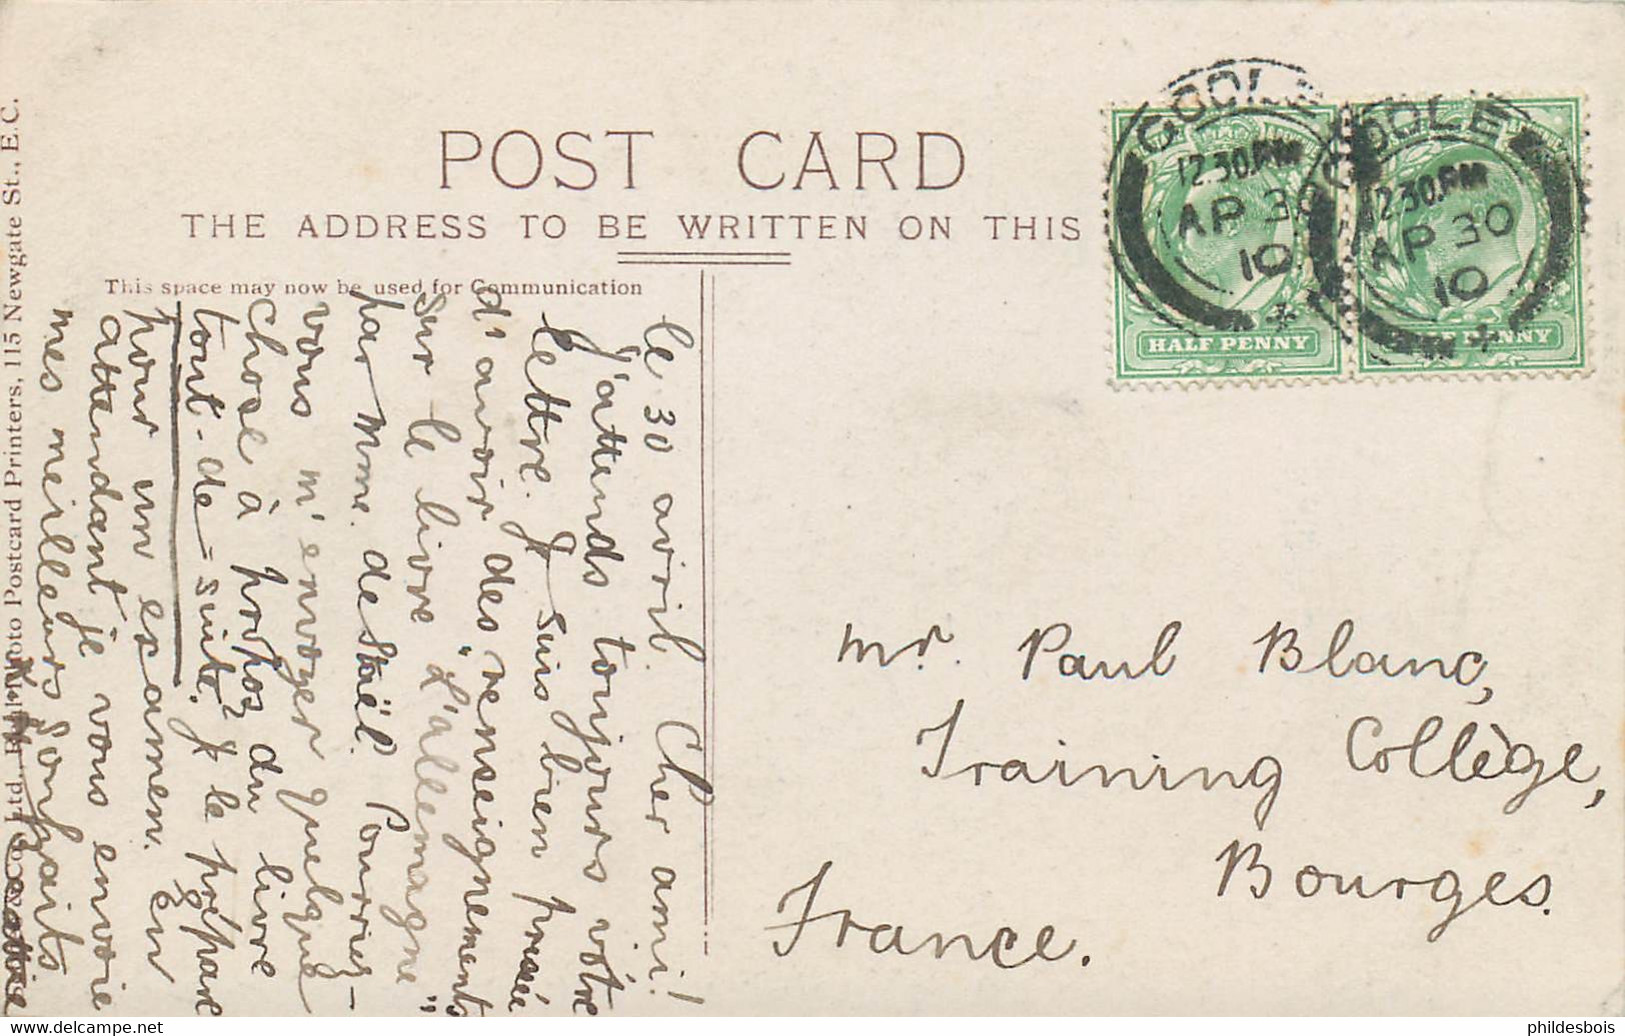 POST CARD
THE ADDRESS TO BE WRITTEN ON THIS
This space may now be used for Communication
GOOLE
12.30.PM
AP 30
10
GOOLE
12.30.PM
AP 30
10
HALF PENNY
HALF PENNY
le 30 avril. Cher ami!
J'attends toujours vôtre
lettre. Je suis bien pressée
d'avoir des renseignements
sur le livre "L'allemagne"
par Mme. de Staël. Pourriez-
vous m'envoyer quelque
chose à propos du livre
tout-de-suite? Je le prépare
pour un examen. En
attendant je vous envoie
mes meilleurs souhaits
Mr. Paul Blanc,
Training Collège,
Bourges.
France.
Ltd., Photo Postcard Printers, 115 Newgate St., E.C.
phildesbois